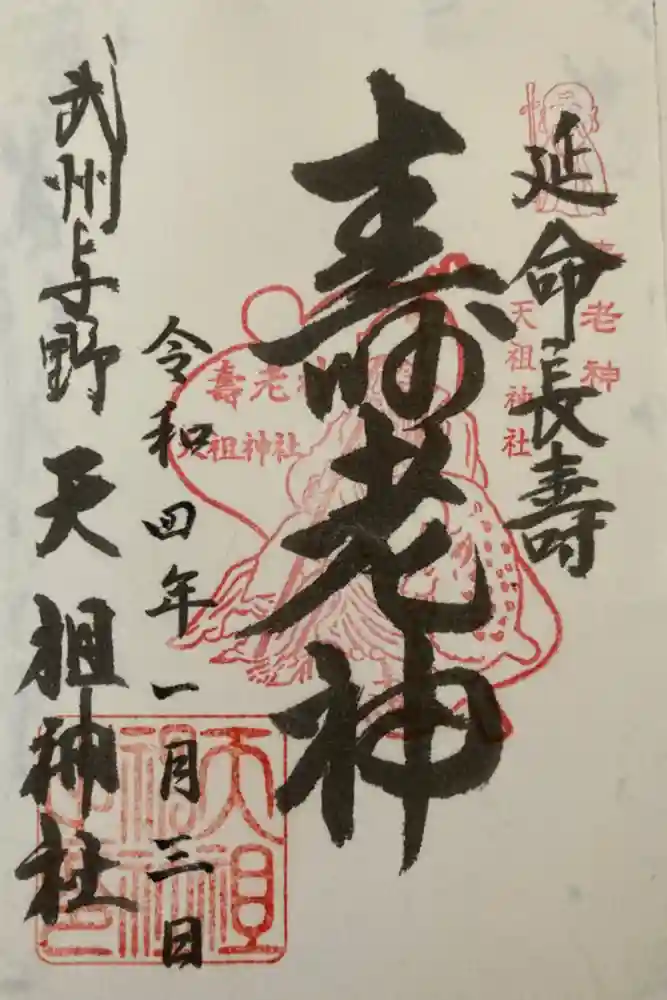 延命長壽
壽老神
天祖神社
寿老神
壽老神
天祖神社
令和四年一月三日
武州与野 天祖神社
天祖神社